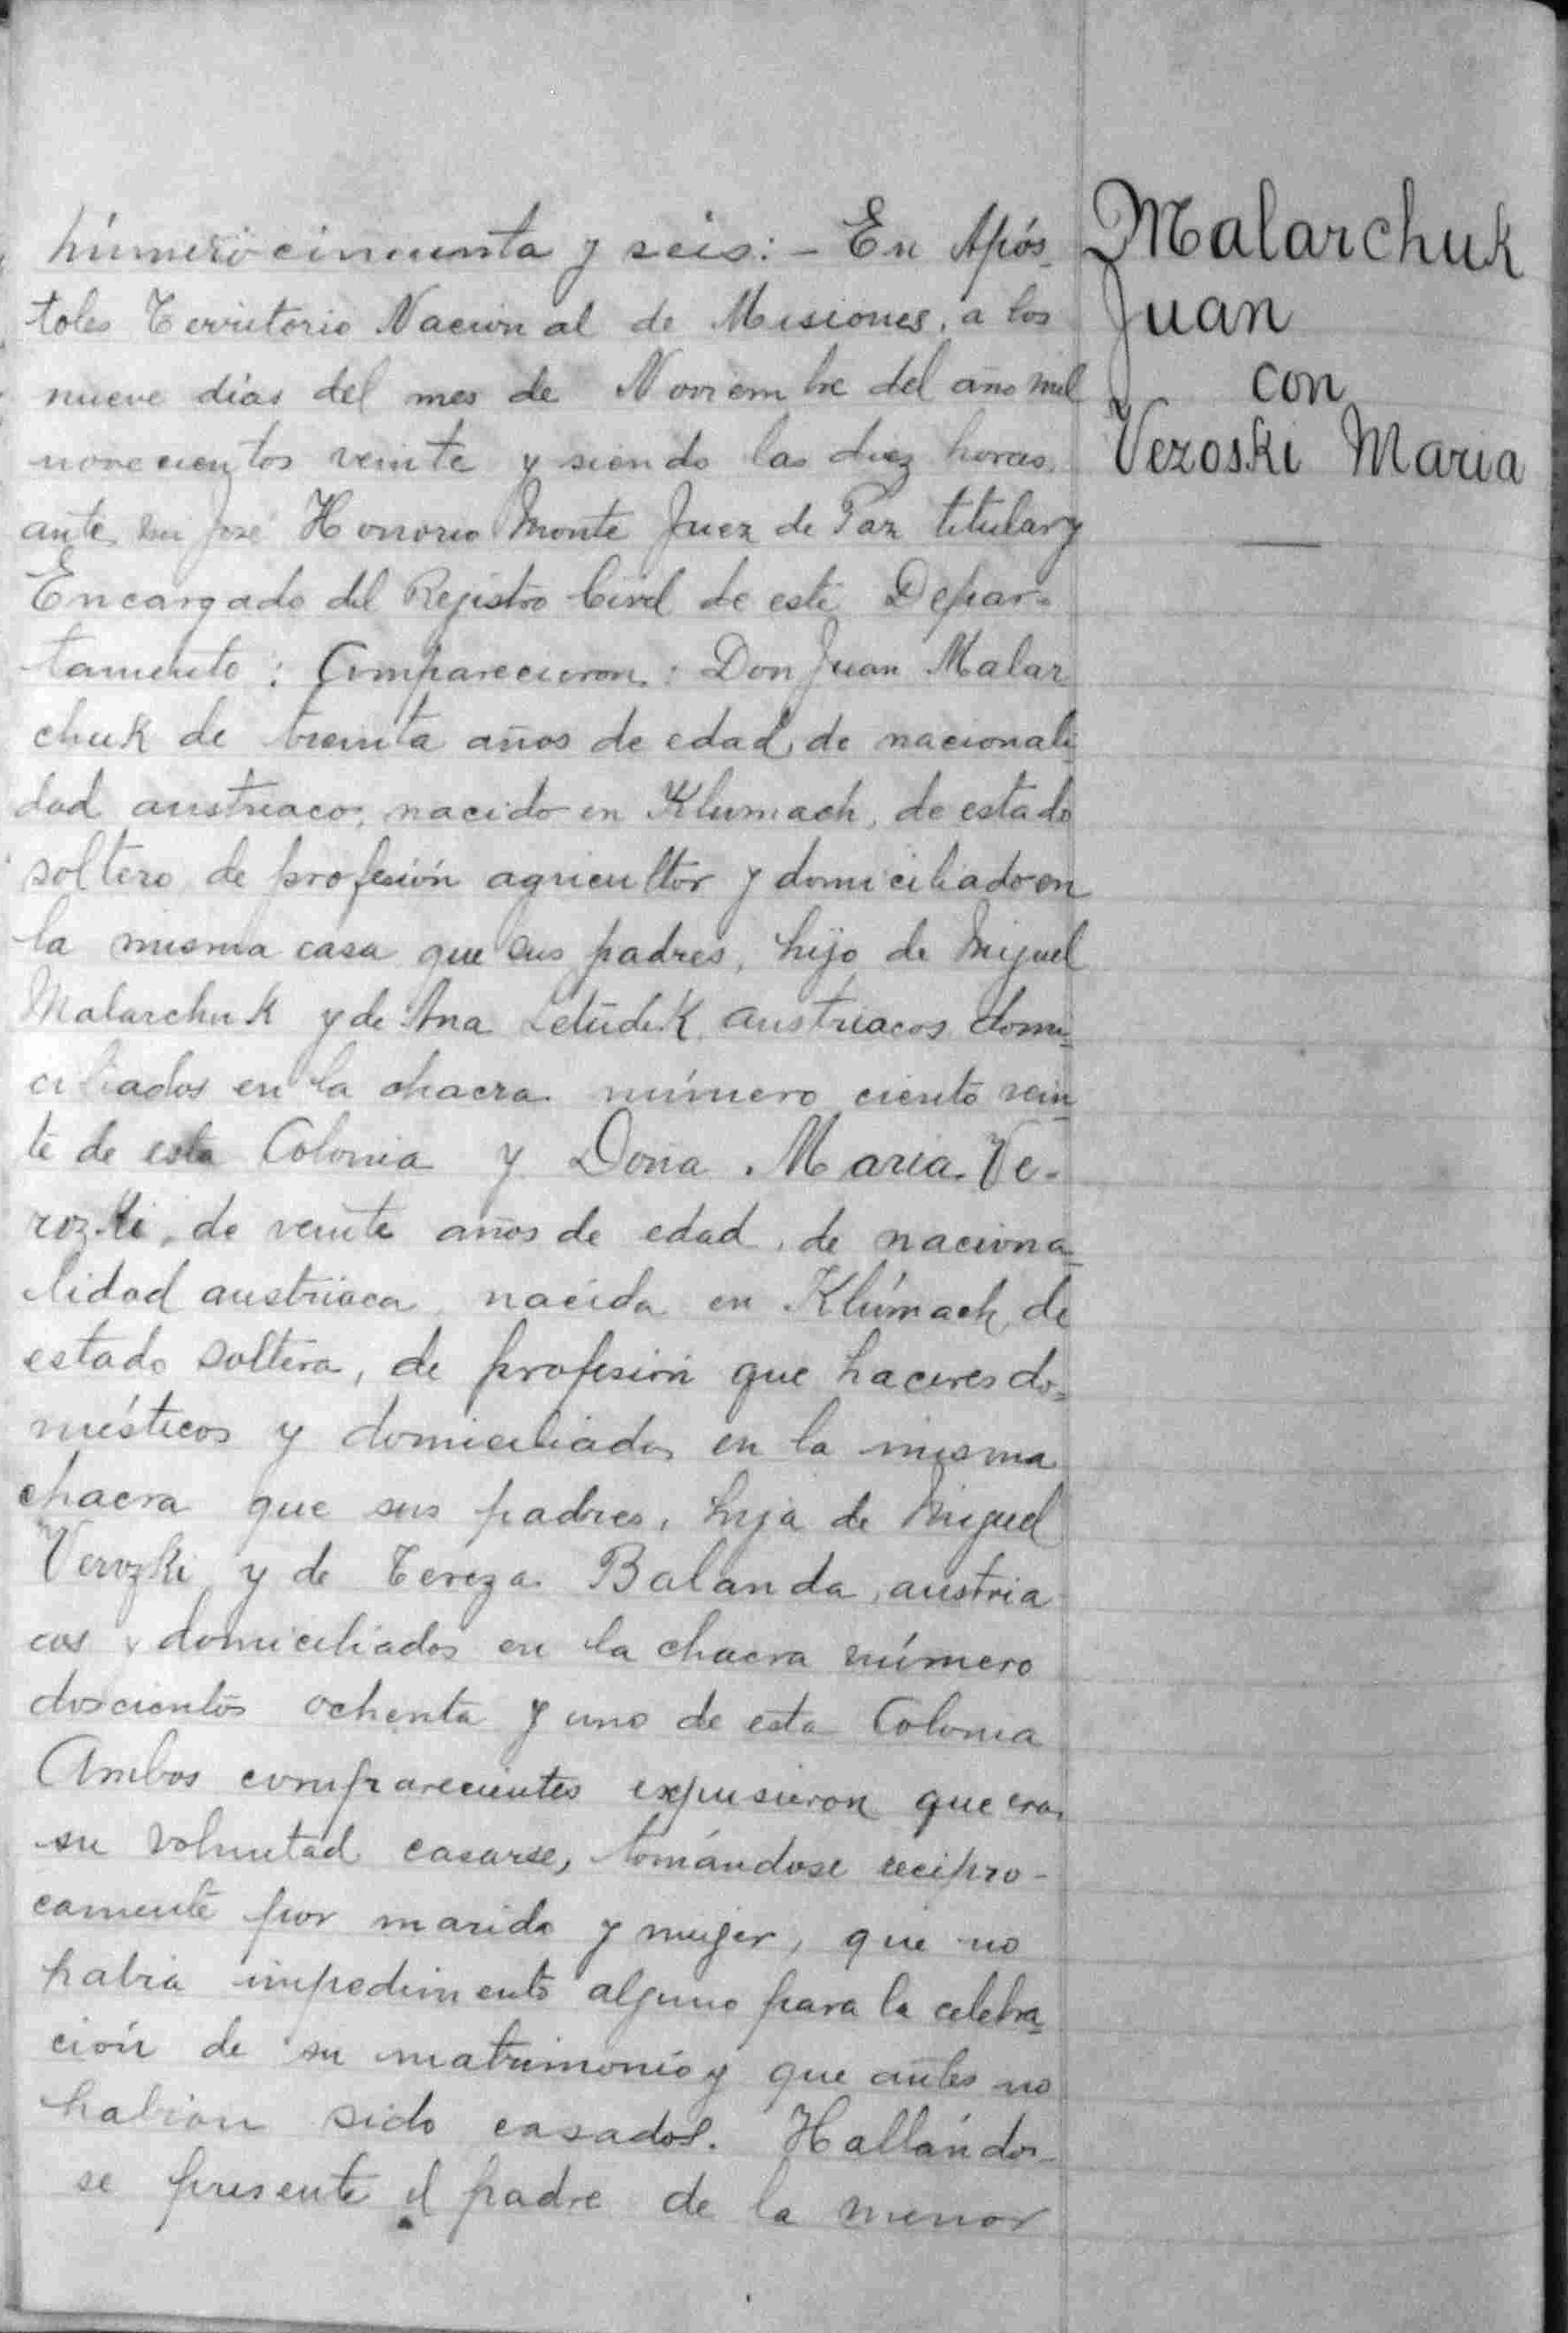 Número cincuenta y seis: - En Após-
toles Territorio Nacional de Misiones, a los
nueve días del mes de Noviembre del año mil
novecientos veinte y siendo las diez horas,
ante mi José Honorio Monte Juez de Paz titular y
Encargado del Rejistro Civil de este Depar-
tamento: Comparecieron: Don Juan Malar
chuk de treinta años de edad, de nacionali-
dad austriaco, nacido en Klumach, de estado
soltero, de profesión agricultor y domiciliado en
la misma casa que sus padres, hijo de Miguel
Malarchuk y de Ana austriacos domi-
ciliados en la chacra número ciento vein
te de esta Colonia y Doña Maria Ve-
rozki, de veinte años de edad, de naciona-
lidad austriaca, nacida en Klúmach, de
estado soltera, de profesión que haceres do-
mésticos y domiciliada en la misma
chacra que sus padres, hija de Miguel
Verozki y de Tereza Balanda, austria
cos y domiciliados en la chacra número
doscientos ochenta y uno de esta Colonia
Ambos comparecientes expusieron que era
su voluntad casarse, tomándose recipro-
camente por marido y mujer, que no
habia impedimento alguno para la celebra-
ción de su matrimonio y que antes no
habian sido casados. Hallándo-
se presente el padre de la menor
Malarchuk
Juan
con
Vezoski Maria